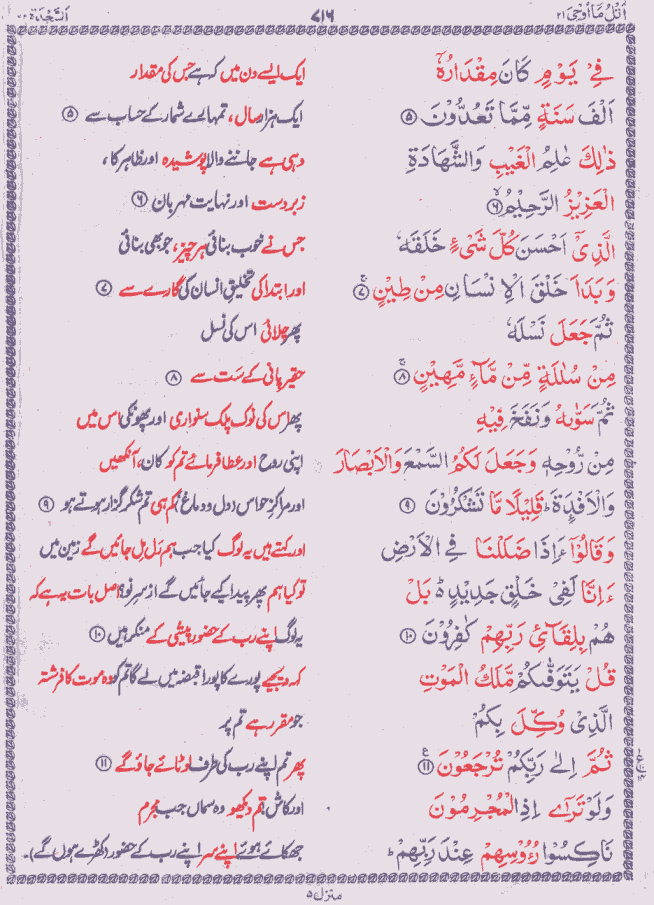 اُتْلُ مَآ اُوْحِیَ ۲۱
۷۱۶
اَلسَّجْدَة ۳۲
فِیْ یَوْمٍ كَانَ مِقْدَارُهٗۤ
ایک ایسے دن میں کہ ہے جس کی مقدار
اَلْفَ سَنَةٍ مِّمَّا تَعُدُّوْنَ ۵
ایک ہزار سال، تمہارے شمار کے حساب سے ۵
ذٰلِكَ عٰلِمُ الْغَیْبِ وَالشَّهَادَةِ
وہی ہے جاننے والا پوشیدہ اور ظاہر کا،
الْعَزِیْزُ الرَّحِیْمُ ۶
زبردست اور نہایت مہربان ۶
الَّذِیْۤ اَحْسَنَ كُلَّ شَیْءٍ خَلَقَهٗ
جس نے خوب بنائی ہر چیز، جو بھی بنائی
وَبَدَاَ خَلْقَ الْاِنْسَانِ مِنْ طِیْنٍ ۷
اور ابتدا کی تخلیقِ انسان کی گارے سے ۷
ثُمَّ جَعَلَ نَسْلَهٗ
پھر چلائی اس کی نسل
مِنْ سُلٰلَةٍ مِّنْ مَّآءٍ مَّهِیْنٍ ۸
حقیر پانی کے ست سے ۸
ثُمَّ سَوّٰىهُ وَنَفَخَ فِیْهِ
پھر اس کی نوک پلک سنواری اور پھونکی اس میں
مِنْ رُّوْحِهٖ وَجَعَلَ لَكُمُ السَّمْعَ وَالْاَبْصَارَ
اپنی روح اور عطا فرمائے تم کو کان، آنکھیں
وَالْاَفْـِٕدَةَ ؕ قَلِیْلًا مَّا تَشْكُرُوْنَ ۹
اور مراکزِ حواس (دل و دماغ) کم ہی تم شکر گزار ہوتے ہو ۹
وَقَالُوْۤا ءَاِذَا ضَلَلْنَا فِی الْاَرْضِ
اور کہتے ہیں یہ لوگ کیا جب ہم رَل مِل جائیں گے زمین میں
ءَاِنَّا لَفِیْ خَلْقٍ جَدِیْدٍ ؕ بَلْ
تو کیا ہم پھر پیدا کیے جائیں گے از سرِ نو؟ اصل بات یہ ہے کہ
هُمْ بِلِقَآئِ رَبِّهِمْ كٰفِرُوْنَ ۱۰
یہ لوگ اپنے رب کے حضور پیشی کے منکر ہیں ۱۰
قُلْ یَتَوَفّٰىكُمْ مَّلَكُ الْمَوْتِ
کہہ دیجیے پورے کا پورا قبضہ میں لے گا تم کو وہ موت کا فرشتہ
الَّذِیْ وُكِّلَ بِكُمْ
جو مقرر ہے تم پر
ثُمَّ اِلٰى رَبِّكُمْ تُرْجَعُوْنَ ۱۱
پھر تم اپنے رب کی طرف لوٹائے جاؤ گے ۱۱
وَلَوْ تَرٰۤى اِذِ الْمُجْرِمُوْنَ
اور کاش تم دیکھو وہ سماں جب مجرم
نَاكِسُوْا رُءُوْسِهِمْ عِنْدَ رَبِّهِمْ ؕ
جھکائے ہوئے اپنے سر اپنے رب کے حضور (کھڑے ہوں گے)۔
منزل ۵